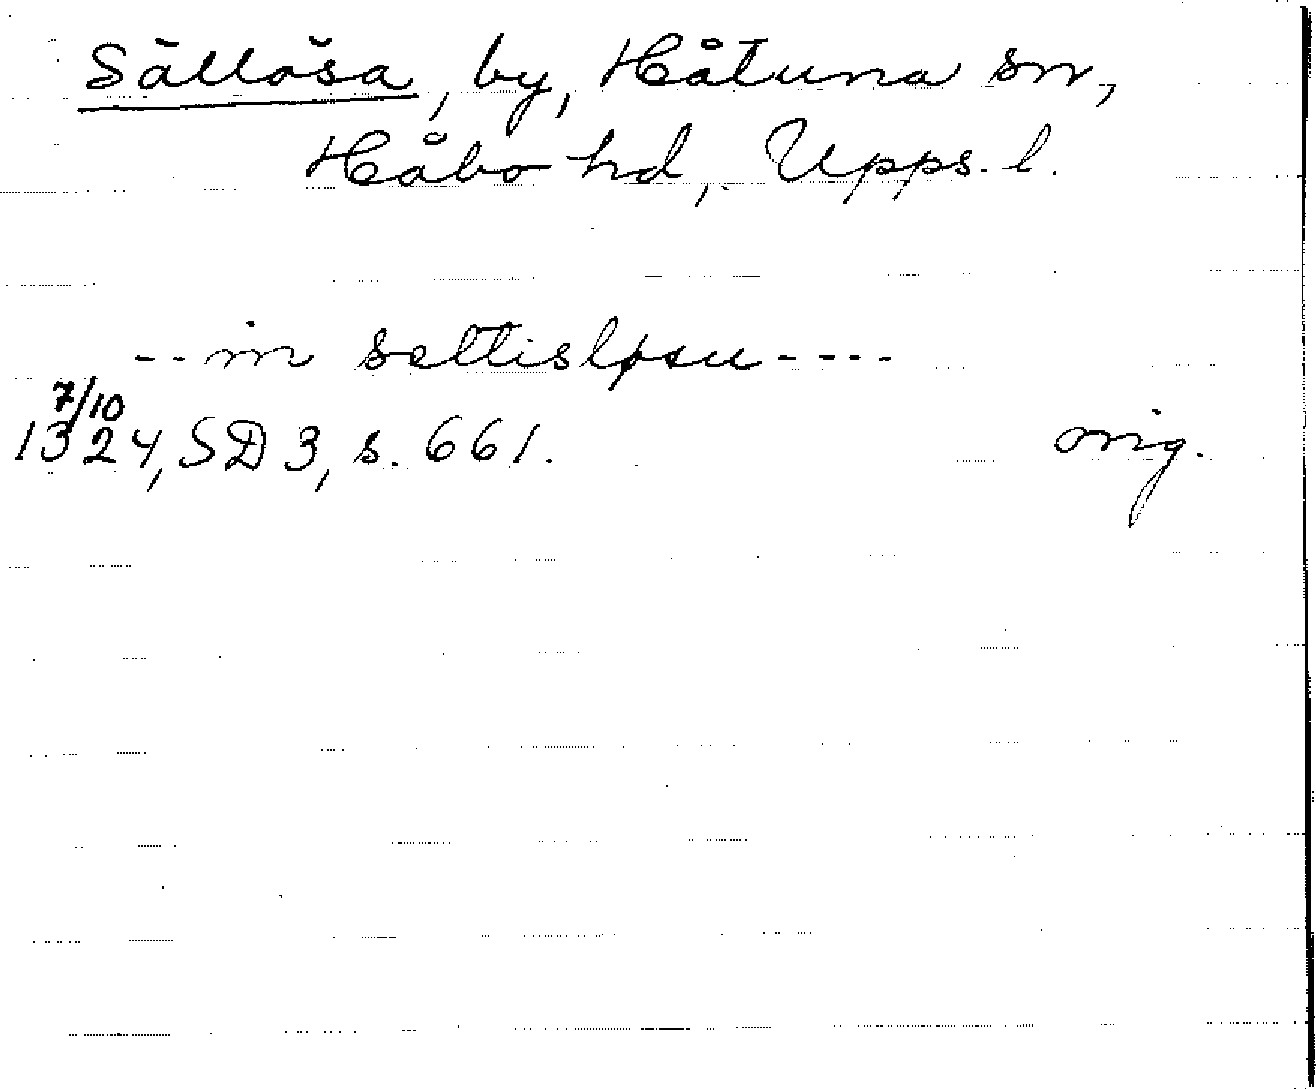 Sällösa, by, Håtuna sn,
Håbo hd, Upps. l.
-- in settisløsu ----
7/10
1324, SD 3, s. 661. orig.